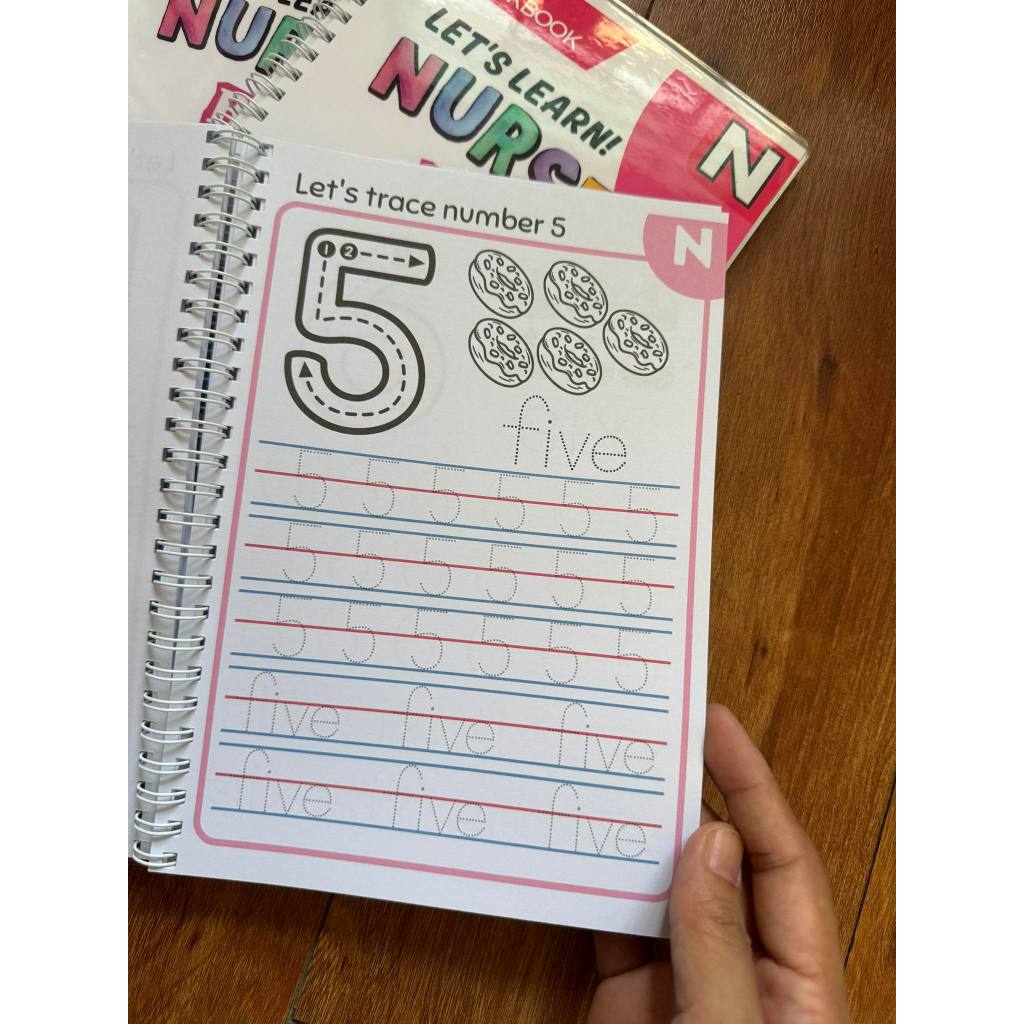 NU
KBOOK
LET'S LEARN!
NURS
N
Let's trace number 5
N
1 2
5
five
5 5 5 5 5 5
5 5 5 5 5 5
5 5 5 5 5 5
five five five
five five five